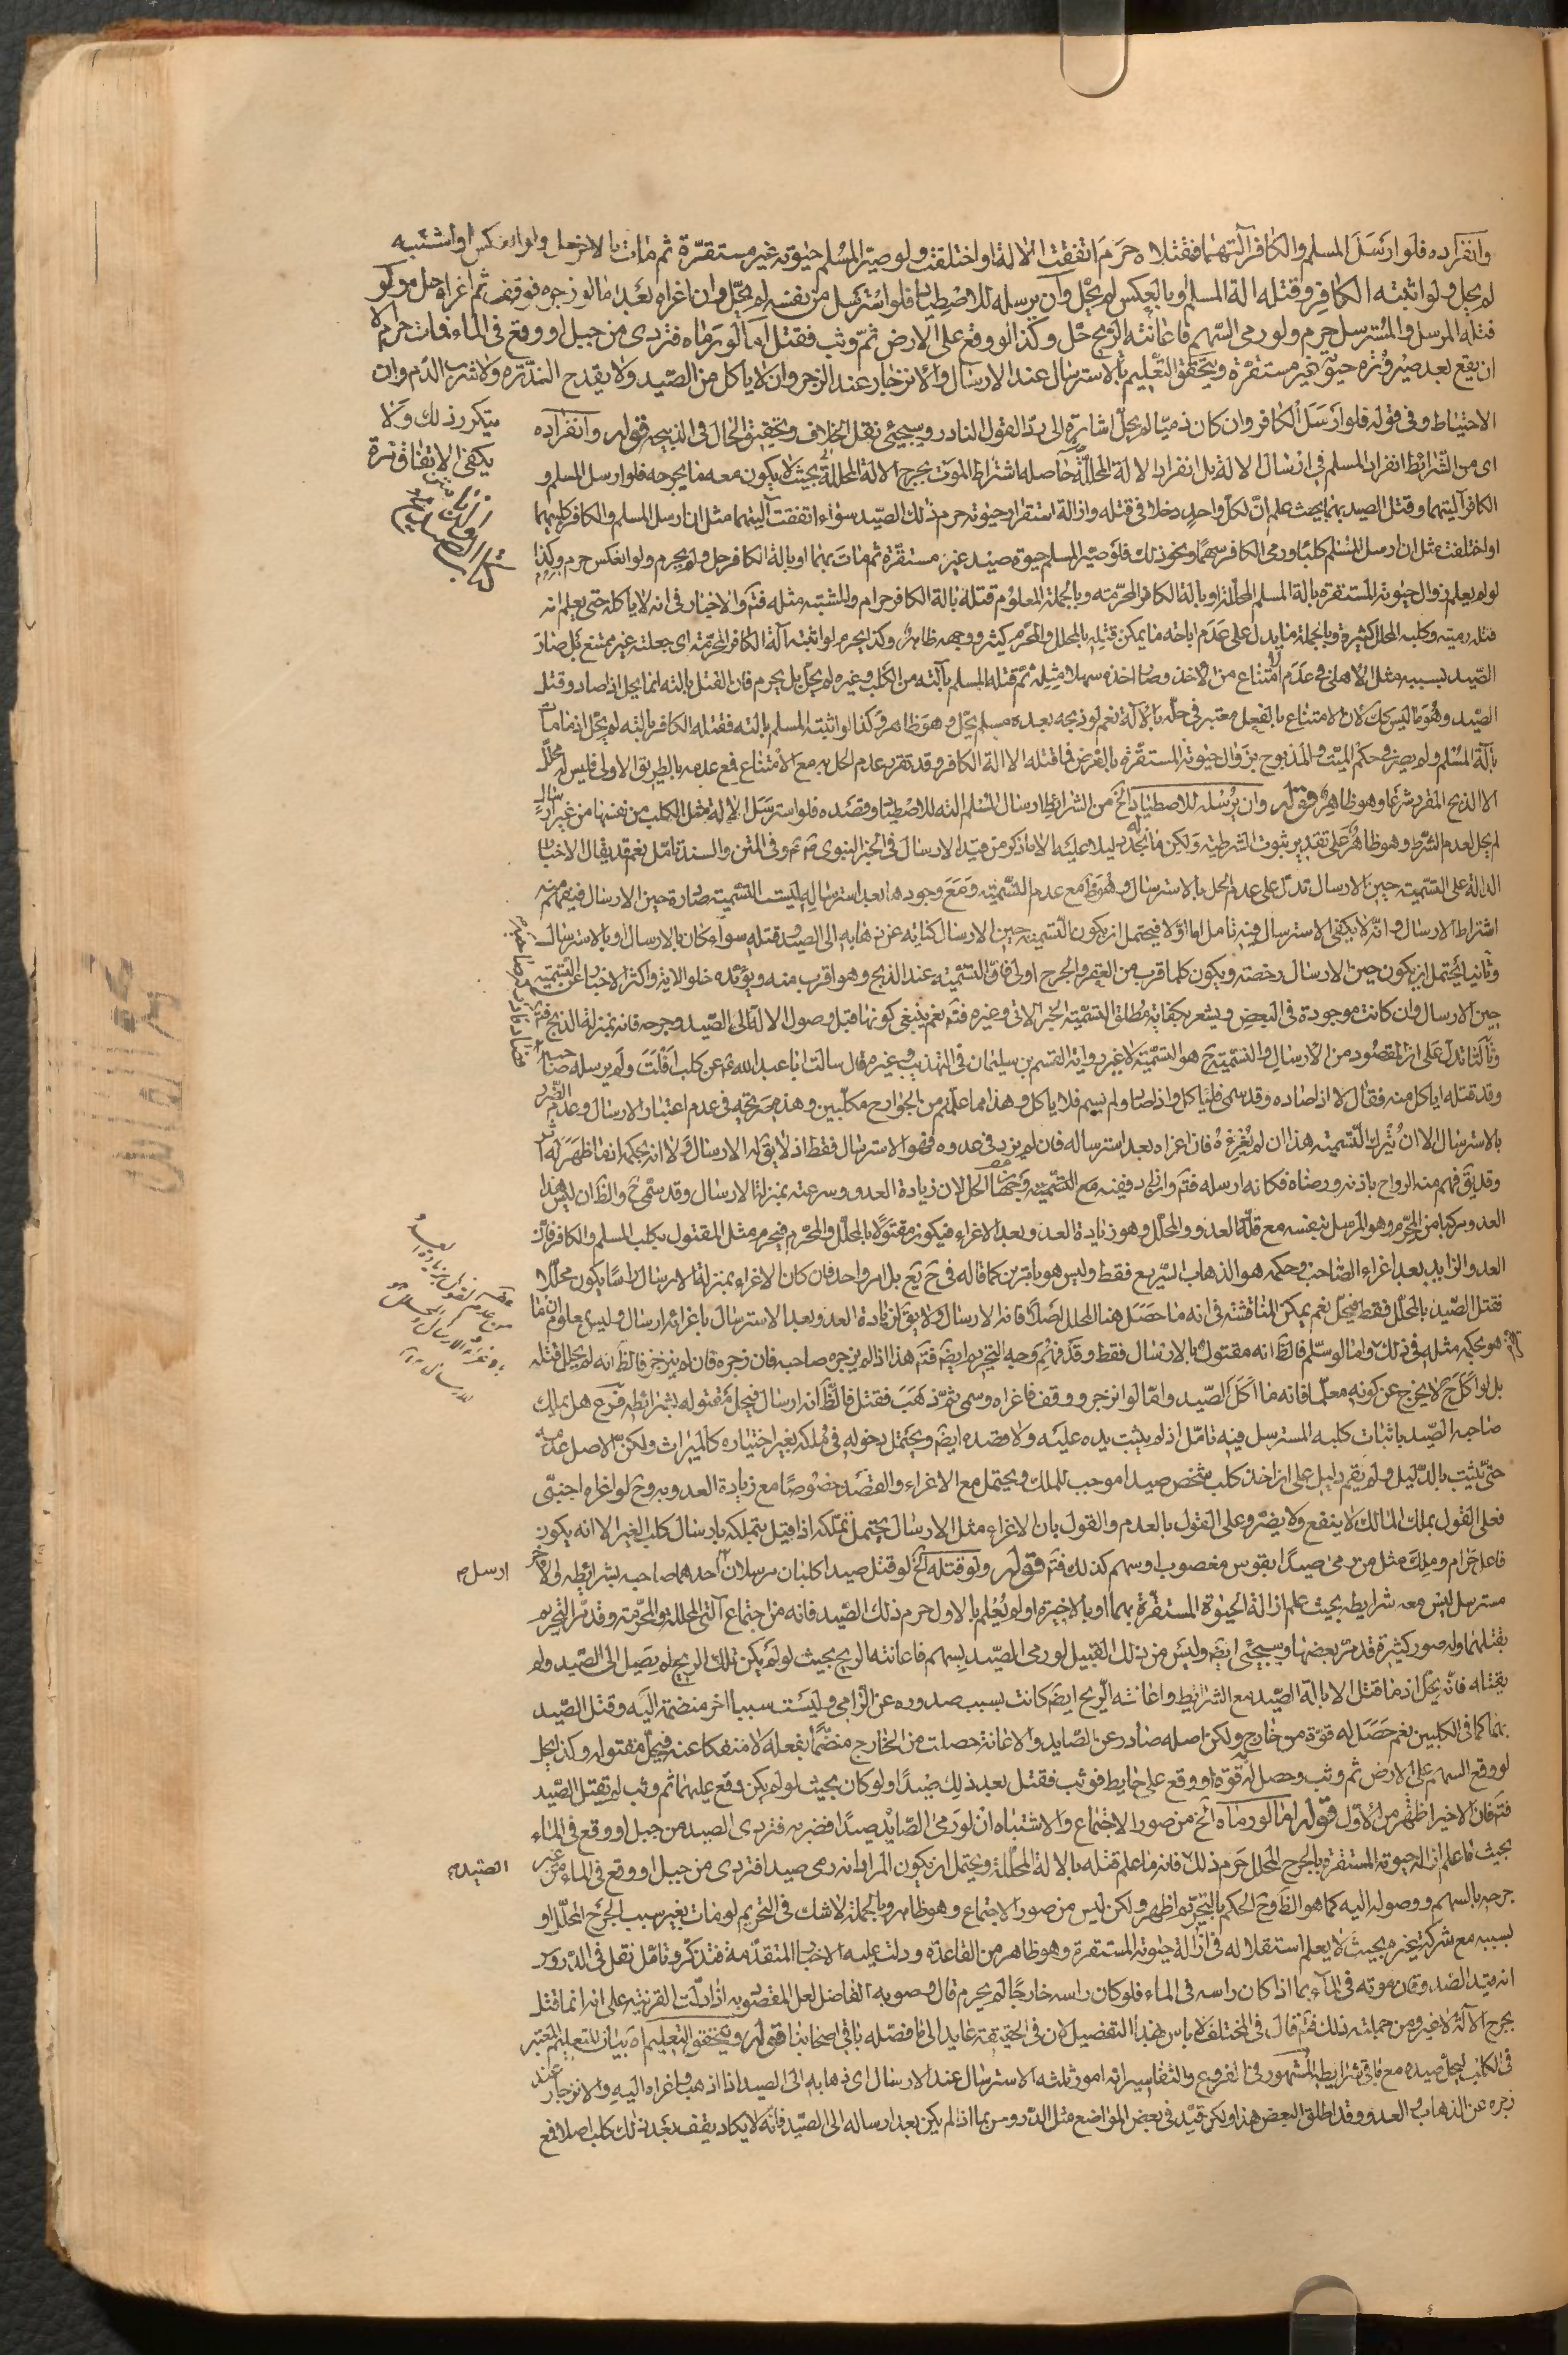 وانفراده فلو ارسل المسلم والكافر آلتهما فقتلاه حرم اتفقت الالة او اختلفت ولو صيّر المسلم حيوته غير مستقرّة ثم مات بالاخر حل ولو انعكس او اشتبه
لم يحل ولو اثبته الكافر وقتله الة المسلم او بالعكس لم يحل وان يرسله للاصطياد فلو استرسل من نفسه لم يحلّ وان اغراه بعد اما لو زجره فوقف ثم اغراه حل ولو
قتله المرسل والمسترسل حرم ولو رمى السّهم فاعانته الريح حل وكذا لو وقع على الارض ثمّ وثب فقتل اما لو رماه فتردى من جبل او وقع في الماء فمات حرم الا
ان يقع بعد صيرورته حيوته غير مستقرة ويتحقق التعليم بالاسترسال عند الارسال والانزجار عند الزجر وان لا ياكل من الصّيد ولا يقدح الندرة ولا شرب الدم وان
يتكرر ذلك ولا
يكفى الاتفاق مرة
الاحتياط وفي قوله فلو ارسل الكافر وان كان ذميّا لم يحلّ اشارة الى ردّ القول النادر وسيجيئ نقل الخلاف وتحقيق الحال في الذبيحة قوله وانفراده
اى من الشرائط انفراد المسلم في ارسال الالة بل انفراد الالة المحلّلة حاصله اشتراط الموت بجرح الالة المحلّلة بحيث لا يكون معه ما يجرحه فلو ارسل المسلم و
الكافر آليتهما وقتل الصيد بهما بحيث علم انّ لكلّ واحد دخلا في قتله وازالة استقرار حيوته حرم ذلك الصّيد سواء اتفقت آليتهما مثل ان ارسل المسلم والكافر كلبهما
او اختلفت مثل ان ارسل المسلم كلبا ورمى الكافر سهما ونحو ذلك فلو صيّر المسلم حيوة صيد غير مستقرّة ثم مات بهما او بالة الكافر حل ولم يحرم ولو انعكس حرم وكذا
لو لم يعلم زوال حيوته المستقرة بالة المسلم المحلّلة او بالة الكافر المحرّمة وبالجملة المعلوم قتله بالة الكافر حرام والمشتبه مثله فتم والاخبار في انه لا ياكله حتى يعلم انه
قتله رميته وكلبه المحلل كثيرة وبالجملة ما يدل على عدم اباحة ما يمكن قتله بالمحلل والمحرم كثير ووجهه ظاهر وكذا يحرم لو اثبته آلة الكافر المحرّمة اى جعلته غير ممتنع بل صار
الصّيد بسببه مثل الاهلى في عدم امتناع من الاخذ وصار اخذه سهلا مثله ثمّ قتله المسلم بآلته من الكلب وغيره لم يحلّ بل يحرم فان القتل بالته انما يحل اذا صاد وقتل
الصّيد وهو ما ليس كك لان الامتناع بالفعل معتبر في حلّه بالآلة نعم لو ذبحه بعده مسلم يحل وهو ظاهر وكذا لو اثبته المسلم بالته فقتله الكافر بالته لم يحل اذ ما مات
بآلة المسلم ولم يصر في حكم الميت والمذبوح بزوال حيوته المستقرّة بالفرض فما قتله الا الة الكافر وقد تقرر عدم الحل به مع الامتناع فمع عدمه بالطريق الاولى فليس له محلّل
الا الذبح المقرر شرعا وهو ظاهر قوله وان يرسله للاصطياد الخ من الشرائط ارسال المسلم الته للاصطياد وقصده فلو استرسل الالة مثل الكلب من نفسها من غير ارسال
لم يحل لعدم الشرط وهو ظاهر على تقدير ثبوت الشرطية ولكن ما نجد له دليلا عليه الا ما ذكر من قيد الارسال في الخبر النبوى صم وفي المتن والسند تامّل نعم قد يقال الاخبار
الدالة على التسمية حين الارسال تدل على عدم الحل بالاسترسال وهو ظ مع عدم التسمية ومع وجودها بعد استرساله ليست التسمية صادرة حين الارسال فيفهم منه
اشتراط الارسال وانّه لا يكفى الاسترسال وفيه تامل اما اوّلا فيحتمل ان يكون التسمية حين الارسال كناية عن ذهابه الى الصيد وقتله سواء كان بالارسال او بالاسترسال
وثانيا يحتمل ان يكون حين الارسال رخصة ويكون كلما قرب من العقر والجرح اولى فان التسمية عند الذبح وهو اقرب منه ويؤيّده خلو الاية واكثر الاخبار عن التسمية
حين الارسال وان كانت موجودة في البعض ويشعر بكفاية مطلق التسمية الخبر الاتى وغيره فتم نعم ينبغى كونها قبل وصول الالة الى الصّيد وجرحه فانه بمنزلة الذبح فتم
وثالثا تدل على ان المقصود من الارسال والتسمية ح هو التسمية لا غير رواية القسم بن سليمان في التهذيب وغيره قال سالت ابا عبد الله عم عن كلب افلت ولم يرسله صاحبه فصاد
وقد قتله اياكل منه فقال لا اذا صاده وقد سمى فلياكل واذا صاد ولم يسم فلا ياكل وهذا مما علّمتم من الجوارح مكلّبين وهذه صريحة في عدم اعتبار الارسال وعدم الضرر
بالاسترسال الا ان يترك التسمية هذا ان لم يغره فان اغراه بعد استرساله فان لم يزد في عدوه فهو الاسترسال فقط اذ لا يق له الارسال ولا انه بحكمه اذ ما ظهر له اثر
وقد يق فهم منه الرواح باذنه ورضاه فكانه ارسله فتم وان زاد ففيه مع التسمية وجهان الحل لان زيادة العدو وسرعته بمنزلة الارسال وقد سمّى ح والظ ان ليس هذا
العدو مركبا من المحرّم وهو المرسل بنفسه مع قلّة العدو والمحلّل وهو زيادة العدو بعد الاغراء فيكون مقتولا بالمحلّل والمحرّم فيحرم مثل المقتول بكلب المسلم والكافر فان
العدو الزايد بعد اغراء الصّاحب وحكمه هو الذهاب السّريع فقط وليس هو بامرين كما قاله في ح يع بل امر واحد فان كان الاغراء بمنزلة الارسال راسا يكون محلّلا
فقتل الصّيد بالمحلّل فقط فيحل نعم يمكن المناقشة في انه ما حصل هنا المحلل لصدق انه الارسال ولا يق ان زيادة العدو بعد الاسترسال باغرائه ارسال وليس بمعلوم ان ما
هو بحكمه مثله في ذلك واما لو سلّم فالظ انه مقتول بالارسال فقط وقد فهم وجه التحريم ايضم فتم هذا اذا لم يزجره صاحبه فان زجره فان لم ينزجر فالظ انه لم يحل قتله
بل لو اكل ح لا يخرج عن كونه معلّما فانه ما اكل الصّيد واما لو انزجر ووقف فاغراه وسمى ثمّ ذهب فقتل فالظّ انه ارسال فيحل مقتوله بشرائطه فرع هل يملك
صاحبه الصّيد باثبات كلبه المسترسل فيه تامّل اذ لم يثبت يده عليه ولا قصده ايضم ويحتمل دخوله في ملكه بغير اختياره كالميراث ولكن الاصل عدمه
حتى يثبت بالدّليل ولم يقم دليل على ان اخذ كلب شخص صيدا موجب للملك ويحتمل مع الاغراء والقصد خصوصا مع زيادة العدو به وح لو اغراه اجنبىّ
فعلى القول بملك المالك لا ينفع ولا يضرّ وعلى القول بالعدم والقول بان الاغراء مثل الارسال يحتمل تملّكه اذا قيل بتملكه بارسال كلب الغير الا انه يكون
فاعل حرام وملك مثل من رمى صيدا بقوس مغصوب او سهم كذلك فتم قوله ولو قتله الخ لو قتل صيدا كلبان مرسلان احدهما صاحبه بشرائطه والاخر
ارسل ص
مسترسل ليس معه شرايطه بحيث علم ازالة الحيوة المستقرّة بهما او بالاخيرة او لم يعلم بالاول حرم ذلك الصّيد فانه من اجتماع آلتى المحللة والمحرّمة وقد مرّ التحريم
بقتلهما وله صور كثيرة قد مرّ بعضها وسيجئ ايضم وليس من ذلك القبيل لو رمى الصّيد بسهم فاعانته الريح بحيث لو لم يكن تلك الريح لم يصل الى الصّيد ولم
يقتله فانّه يحلّ اذ ما قتل الا بالة الصّيد مع الشرايط واعانة الريح ايضم كانت بسبب صدوره عن الرّامى وليست سببا اخر منضمة اليه وقتل الصّيد
بهما كما في الكلبين نعم حصل له قوّة من خارج ولكن اصله صادر عن الصّايد والاعانة حصلت من الخارج منضمّا بفعله لا منفكا عنه فيحلّ مقتوله وكذا يحل
لو وقع السهم على الارض ثم وثب وحصل له قوّة او وقع على حايط فوثب فقتل بعد ذلك صيدا ولو كان بحيث لو لم يكن وقع عليهما ثم وثب لم يقتل الصّيد
فتم فان الاخير اظهر من الاول قوله اما لو رماه الخ من صور الاجتماع والاشتباه ان لو رمى الصّايد صيدا فضربه فتردى الصيد من جبل او وقع في الماء
بحيث ما علم ازالة حيوته المستقرة بالجرح المحلل حرم ذلك فانه ما علم قتله بالالة المحلّلة ويحتمل ان يكون المراد انه رمى صيدا فتردى من جبل او وقع في الماء من غير
الصّيد ص
جرحه بالسهم ووصوله اليه كما هو الظ وح الحكم بالتحريم اظهر ولكن ليس من صور الاجتماع وهو ظاهر وبالجملة لا شك في التحريم لو مات بغير سبب الجرح المحلّل او
بسببه مع شركة غيره بحيث لا يعلم استقلاله في ازالة حيوته المستقرة وهو ظاهر من القاعدة ودلت عليه الاخبار المتقدّمة فتذكّر وتامّل نقل في الدّروس
انه قيد الصدوقان موته في الماء بما اذا كان راسه في الماء فلو كان راسه خارجا لم يحرم قال وصوبه الفاضل لعل المقصود به اذا دلّت القرينة على انه انما قتل
بجرح الآلة لا غير ومن جملته ذلك فتم قال في المختلف لا باس بهذا التفصيل لان في الحقيقة عايد الى ما فصّله باقى اصحابنا قوله ويتحقق التعليم اه بيان للتعليم المعتبر
في الكلب ليحل صيده مع باقى شرايطه المشهور في الفروع والتفاسير انه امور ثلثه الاسترسال عند الارسال اى ذهابه الى الصيد اذا اذهبه واغراه اليه والانزجار عند
زجره عن الذهاب والعدو وقد اطلق البعض هذا ولكن قيّد في بعض المواضع مثل الدّروس بما اذا لم يكن بعد ارساله الى الصّيد فانّه لا يكاد يقف بعد ذلك كلب اصلا فمع